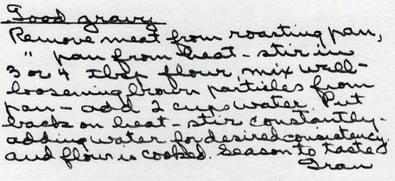 Good gravy
Remove meat from roasting pan,
" pan from heat - stir in
3 or 4 tbsp flour, mix well -
loosening brown particles from
pan - add 2 cups water. Put
back on heat - stir constantly -
adding water for desired consistency
and flour is cooked. Season to taste
Gram